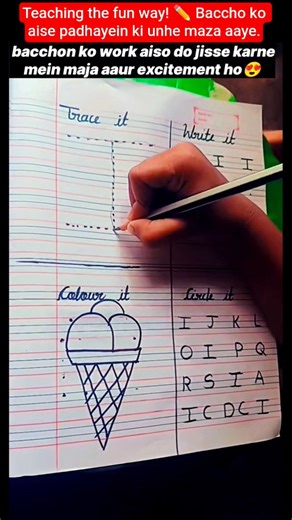 Teaching the fun way! ✏️ Baccho ko
aise padhayein ki unhe maza aaye.
bacchon ko work aiso do jisse karne
mein maja aaur excitement ho😍
Trace it
Write it
I I
I
Colour it
Circle it
I J K L
O I P Q
R S I A
I C D C I